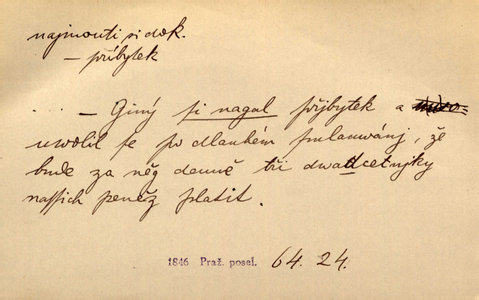 najmouti si dok.
— příbytek
... — Giný si nagal přjbytek a
uwolil se po dlauhém smlauwánj, že
bude za něg denně tři dwadcetnjky
nassich peněz platit.
1846 Praž. posel. 64. 24.